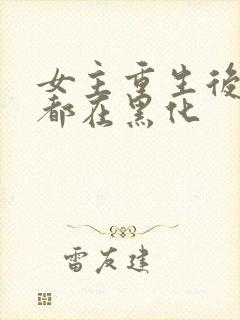 女主重生後
都在黑化
雷友建